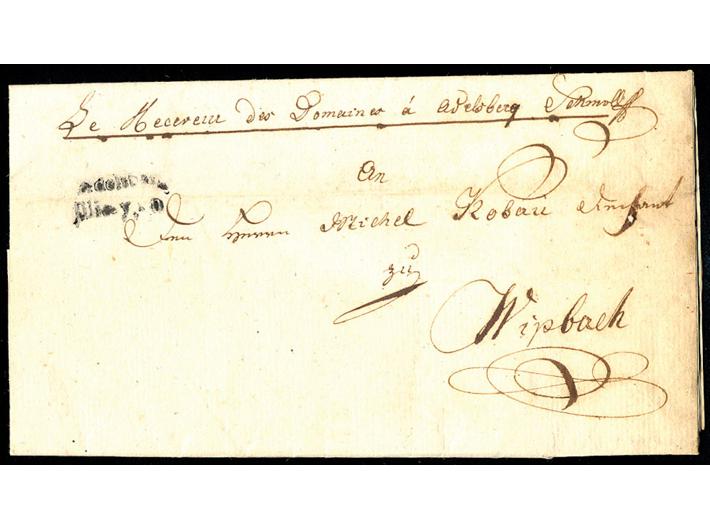 Le Receveur des Domaines á Adelsberg Schmoll
An
Den Herrn Michel Kobau
zu
Wipbach